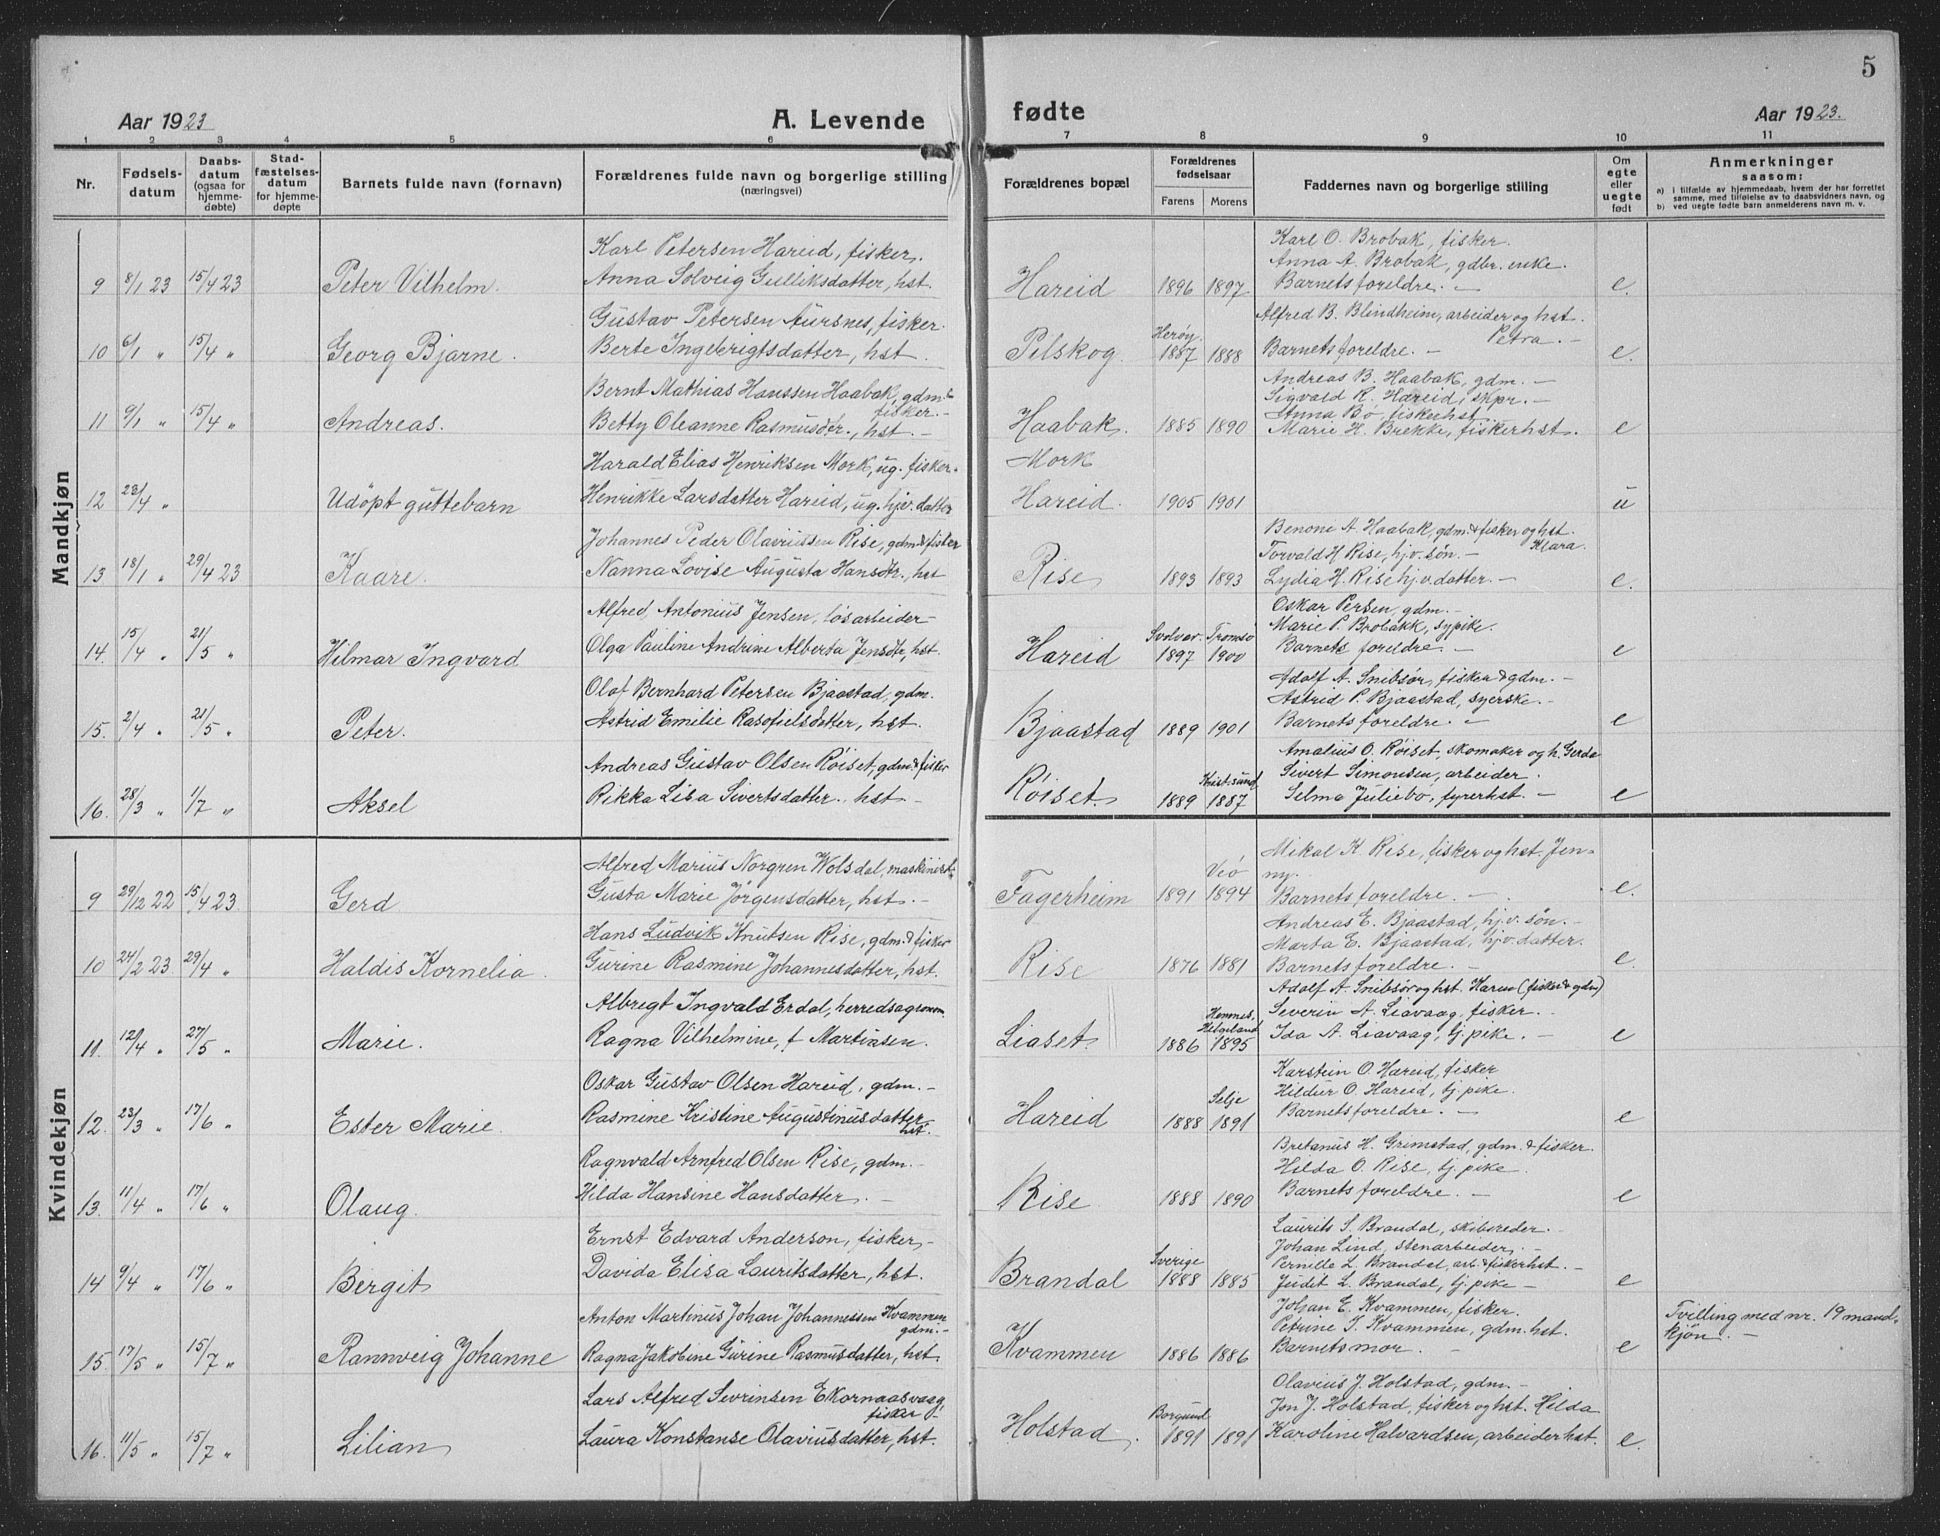 5
Aar 1923
A. Levende
fødte
Aar 1923.
1 2 3 4 5 6 7 8 9 10 11
Nr.
Fødsels-
datum
Daabs-
datum
(ogsaa for
hjemme-
døbte)
Stad-
fæstelses-
datum
for hjemme-
døpte
Barnets fulde navn (fornavn)
Forældrenes fulde navn og borgerlige stilling
(næringsvei)
Forældrenes bopæl
Forældrenes
fødselsaar
Farens Morens
Faddernes navn og borgerlige stilling
Om
egte
eller
uegte
født
Anmerkninger
saasom:
a) i tilfælde av hjemmedaab, hvem der har forrettet
samme, med tilføielse av to daabsvidners navn, og
b) ved uegte fødte barn anmelderens navn m. v.
Mandkjøn
Karl Petersen Hareid, fisker. Karl O. Brobak, fisker.
Anna A. Brobak, gdbr. enke.
9 8/1 23 15/4 23 Peter Vilhelm. Anna Solveig Gulliksdatter, hst. Hareid 1896 1897 Barnets foreldre. — e.
Gustav Petersen Aursnes, fisker. Alfred B. Blindheim, arbeider og hst.
Herøy Petra. —
10 6/1 „ 15/4 „ Georg Bjarne. Berte Ingebrigtsdatter, hst. Pilskog. 1887 1888 Barnets foreldre. — e.
Bernt Mathias Hanssen Haabak, gdm. & Andreas B. Haabak, gdm. —
fisker. — Sigvald R. Hareid, skpr. —
Anna Bø, fiskerhst.
11 9/1 „ 15/4 „ Andreas. Betty Oleanne Rasmusdtr., hst. — Haabak. 1885 1890 Marie H. Brekke, fiskerhst. e
Harald Elias Henriksen Mork, ug. fisker. Mork
12 23/4 „ Udöpt guttebarn Henrikke Larsdatter Hareid, ug. hjv. datter Hareid. 1905 1901 u
Johannes Peder Olavussen Rise, gdm. & fisker Benone A. Haabak, gdm. & fisker og hst.
Torvald H. Rise, hjv. søn. — Klara.
13 18/1 „ 29/4 23 Kaare. Nanna Lovise Augusta Hansdtr., hst Rise 1893 1893 Lydia H. Rise hjv. datter. — e.
Alfred Antonius Jensen, løsarbeider — Oskar Persen, gdm. —
Svolvær. Tromsø Marie P. Brobakk, sypike.
14. 15/4 „ 21/5 „ Hilmar Ingvard Olga Pauline Andrine Alberta Jensdtr, hst. Hareid 1897 1900 Barnets foreldre. — e
Olaf Bernhard Petersen Bjaastad, gdm. Adolf A. Snibsør, fisker & gdm. —
Astrid P. Bjaastad, syerske. —
15. 2/4 „ 21/5 „ Peter. Astrid Emilie Rasofielsdatter, hst. Bjaastad 1889 1901 Barnets foreldre. — e
Andreas Gustav Olsen Røiset, gdm. & fisker Amalius O. Røiset, skomaker og h. Gerda
Krist.sund Sivert Simonsen, arbeider.
16. 28/3 „ 1/7 „ Aksel Rikka Lisa Sivertsdatter, hst — Røiset. 1889 1887 Selma Juliebø, fyrerhst. — e
Kvindekjøn
Alfred Marius Norgren Wolsdal, maskinist. Mikal K. Rise, fisker og hst. Jen-
Veø ny.
9 29/12 22 15/4 23 Gerd Gusta Marie Jörgensdatter, hst. — Fagerheim 1891 1894 Barnets foreldre. — e.
Hans Ludvik Knutsen Rise, gdm. & fisker Andreas E. Bjaastad, hjv. søn. —
Marta E. Bjaastad, hjv. datter.
10 24/2 23 29/4 „ Haldis Kornelia. Gurine Rasmine Johannesdatter, hst. Rise 1876 1881 Barnets foreldre. — e.
Albregt Ingvald Erdal, herredsagronom. Adolf A. Snibsør og hst. Karen (fisker & gdm)
Hemnes, Severin A. Liavaag, fisker. —
Helgeland
11. 12/4 „ 27/5 „ Marie. Ragna Vilhelmine, f. Martinsen. Liaset. 1886 1895 Ida A. Liavaag, tj. pike. — e
Oskar Gustav Olsen Hareid, gdm. — Karstein O. Hareid, fisker
Selje Hildur O. Hareid, tj. pike.
12. 23/3 „ 17/6 „ Ester Marie. Rasmine Kristine Augustinusdatter Hareid 1888 1891 Barnets foreldre. — e
hst. —
Ragnvald Arnfred Olsen Rise, gdm. — Bretanus H. Grimstad, gdm. & fisker.
Hilda O. Rise, tj. pike.
13. 11/4 „ 17/6 „ Olaug. Hilda Hansine Hansdatter. — Rise 1888 1890 Barnets foreldre. — e
Ernst Edvard Anderson, fisker, — Laurits S. Brandal, skibsreder. —
Sverige Johan Lind, stenarbeider. —
Pernille L. Brandal, arb. & fiskerhst. —
14 9/4 „ 17/6 „ Bergit Davida Elisa Lauritsdatter, hst. Brandal 1888 1885 Judit L. Brandal, tj. pike — e
Anton Martinus Johan Johannessen Kvammen Johan E. Kvammen, fisker. Tvilling med nr. 19 mand-
gdm. — Petrine J. Kvammen, gdm. hst. kjøn. —
15. 17/5 „ 15/7 „ Rannveig Johanne Ragna Jakobine Gurine Rasmusdatter, hst. Kvammen 1886 1886 Barnets mor. — e
Lars Alfred Sevrinsen Ekornaasvaag, Olavius J. Holstad, gdm. —
fisker — Borgund Jon J. Holstad, fisker og hst. Hilda
16. 11/5 „ 15/7 „ Lilian Laura Konstanse Olaviusdatter, hst. Holstad. 1891 1891 Karoline Halvardsen, arbeiderhst. e.